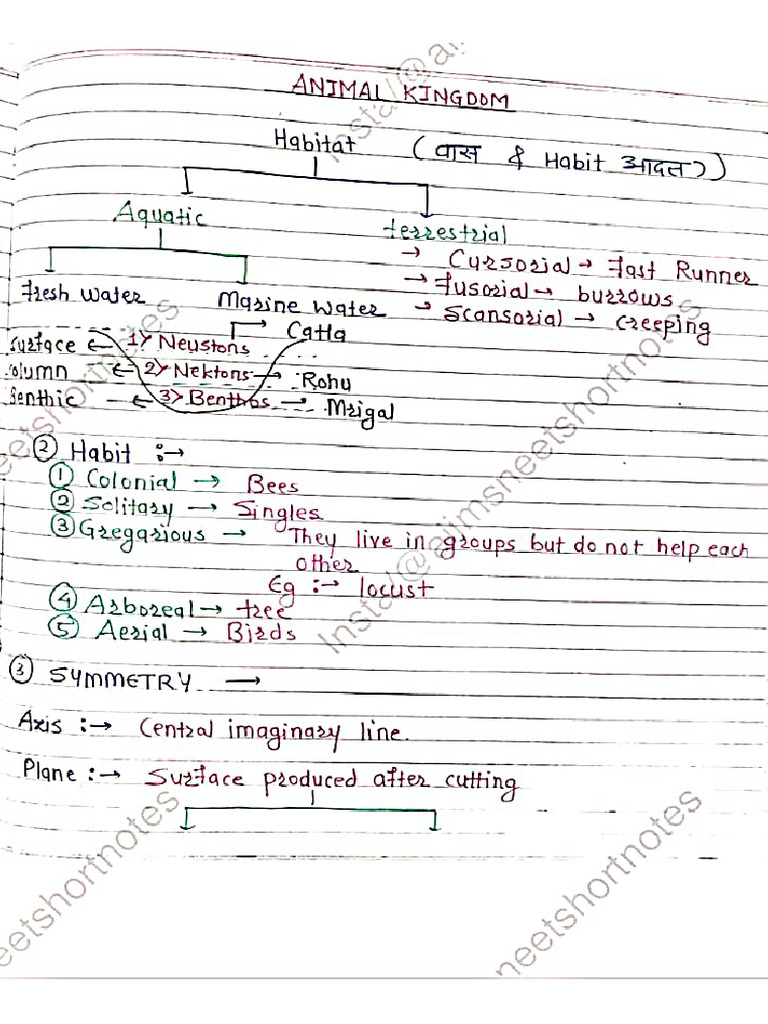 ANIMAL KINGDOM
Habitat (वास & Habit आदत))
Aquatic
terrestrial
→ Cursorial → Fast Runner
→ Fusorial → burrows
→ Scansorial → Creeping
Fresh water Marine water
→ Catla
surface ← 1) Neustons
olumn ← 2) Nektons → Rohu
Benthic ← 3) Benthos → Mrigal
② Habit :→
① Colonial → Bees
② Solitary → Singles
③ Gregarious → They live in groups but do not help each
other
Eg :→ locust
④ Arboreal → tree
⑤ Aerial → Birds
③ SYMMETRY →
Axis :→ Central imaginary line.
Plane :→ Surface produced after cutting
Insta/@aiimsneetshortnotes
Insta/@ai
neetshortnotes
eetshortnotes
neetshortnotes